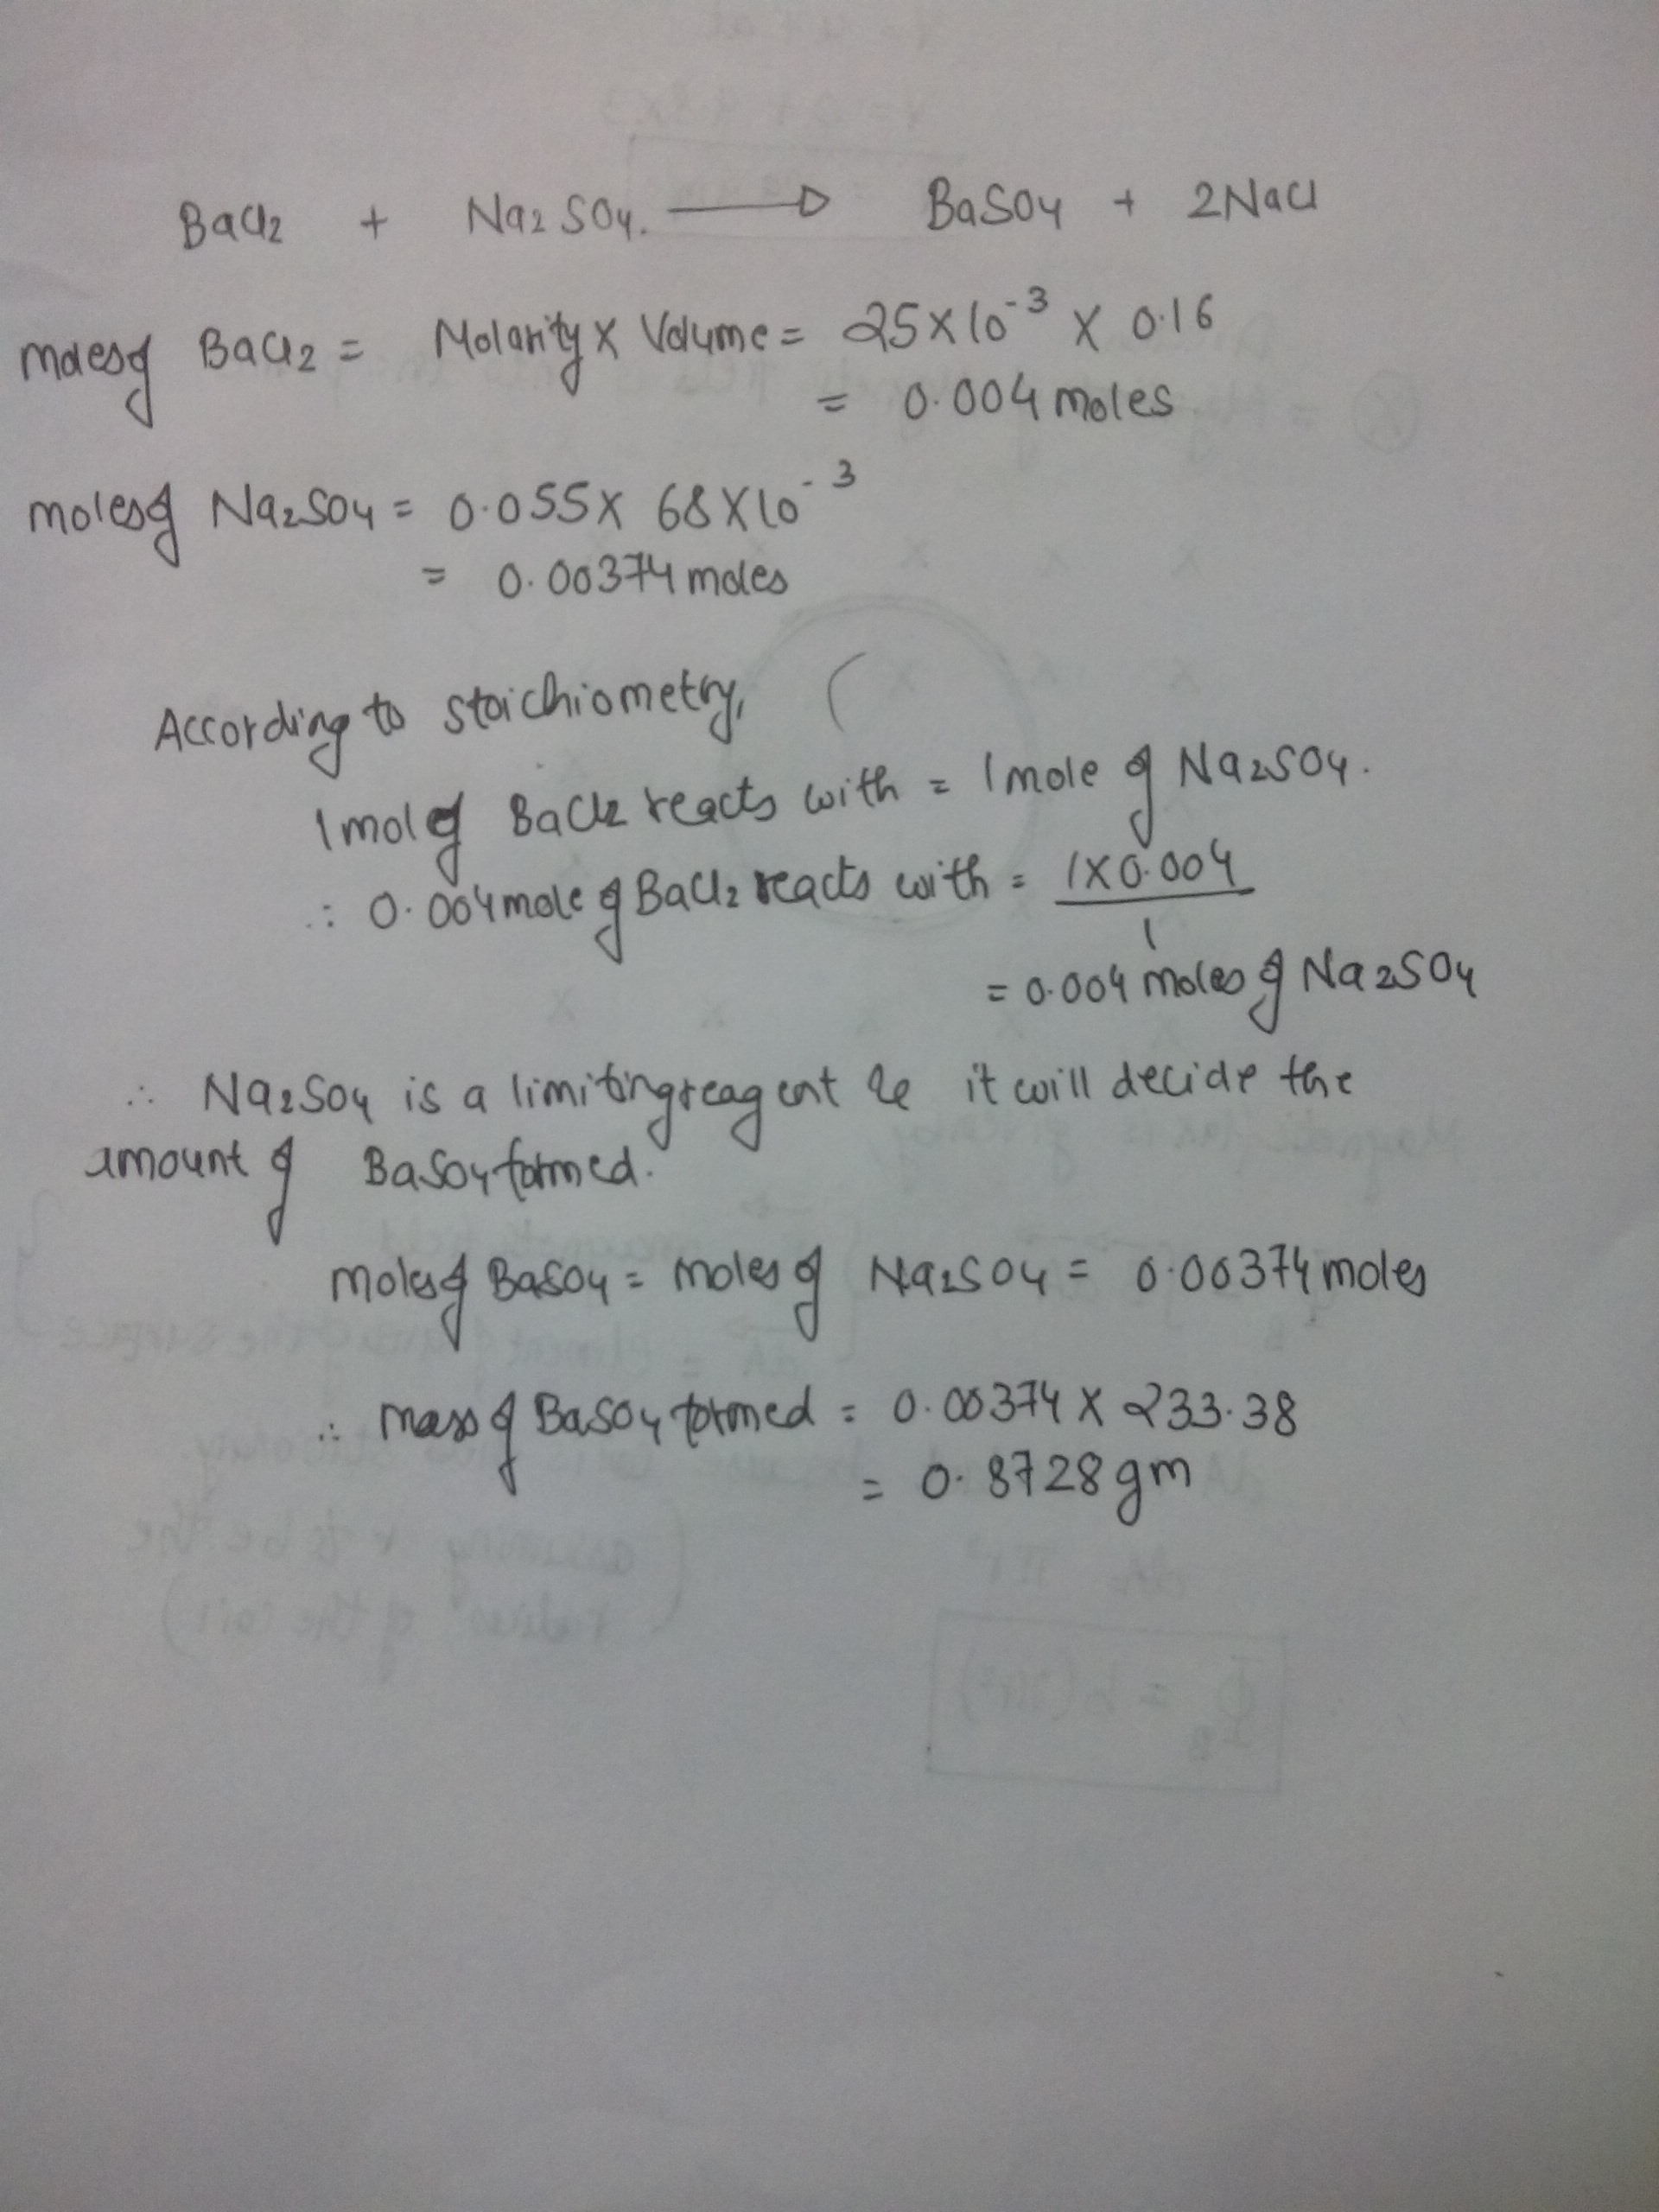 BaCl2 + Na2SO4. → BaSO4 + 2NaCl
moles of BaCl2 = Molarity X Volume = 25X10-3 X 0.16
= 0.004 moles
moles of Na2SO4 = 0.055X 68X10-3
= 0.00374 moles
According to stoichiometry,
1 mol of BaCl2 reacts with = 1 mole of Na2SO4.
∴ 0.004 mole of BaCl2 reacts with = 1X0.004
1
= 0.004 moles of Na2SO4
∴ Na2SO4 is a limiting reagent & it will decide the
amount of BaSO4 formed.
moles of BaSO4 = moles of Na2SO4 = 0.00374 moles
∴ mass of BaSO4 formed = 0.00374 X 233.38
= 0.8728 gm